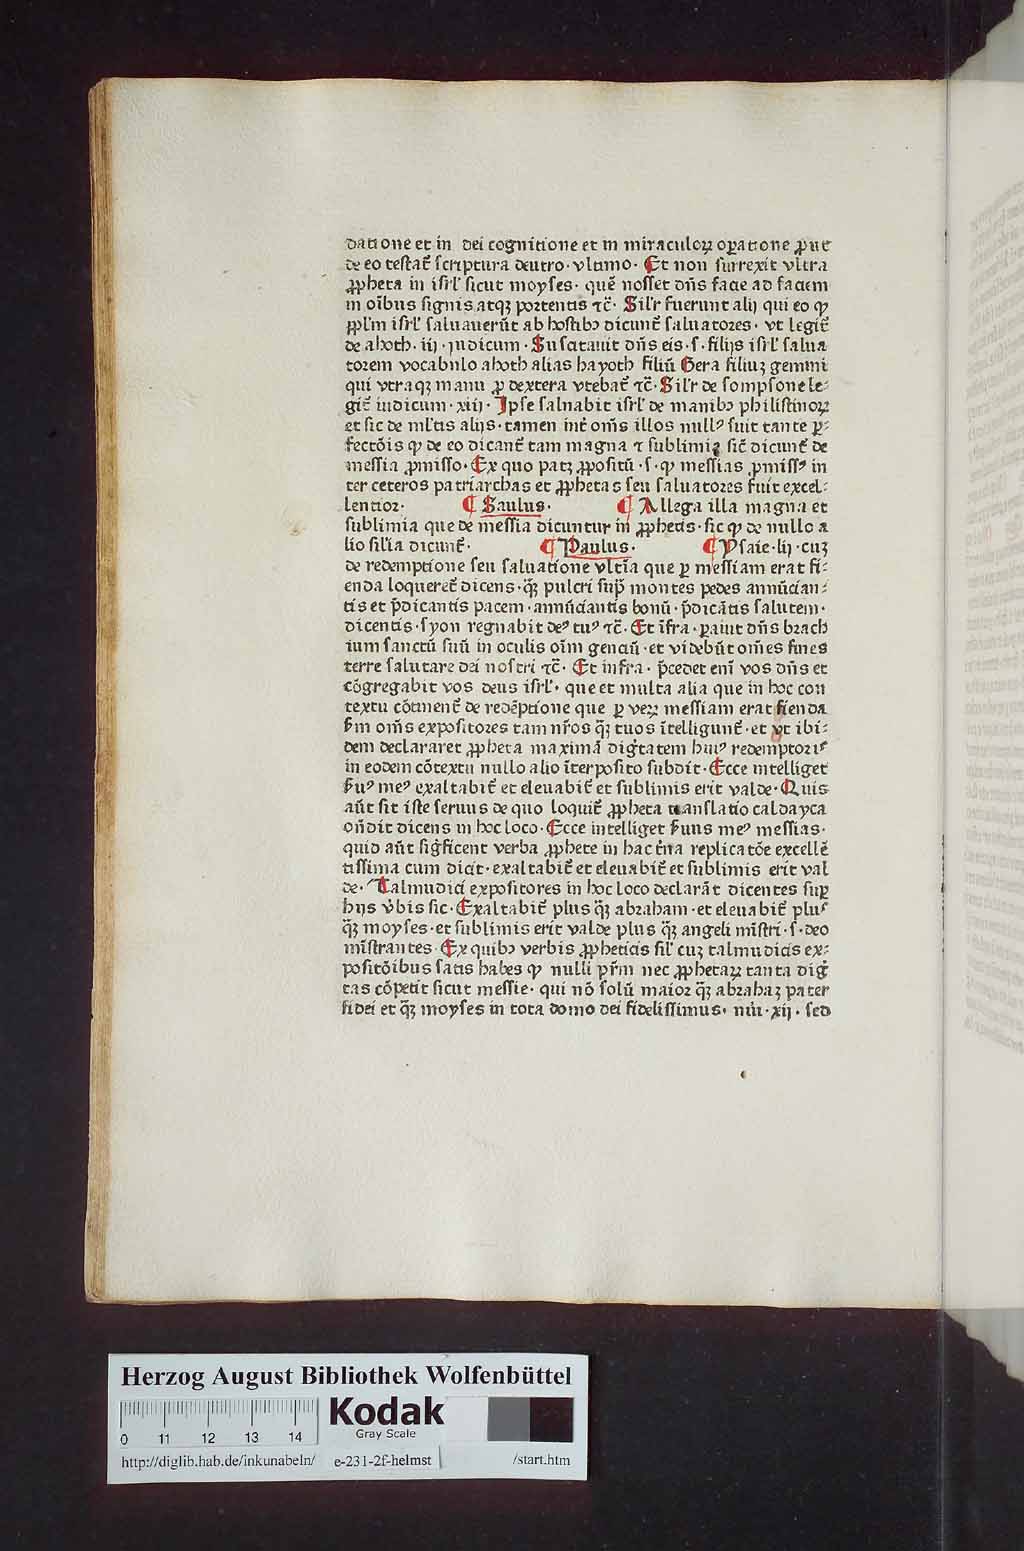 datione et in dei cognitione et in miraculoꝝ oꝑatione ꝓut
de eo testat᷑ scriptura deutro· vltimo· Et non surrexit vltra
ꝓpheta in isrl᷑ sicut moyses· quē nosset dn̄s facie ad faciem
in oībus signis atqꝫ portentis ⁊c̄· Sil᷑r fuerunt alij qui eo ꝙ
ppl᷑m isrl᷑ saluauerūt ab hostibꝰ dicunt᷑ saluatores· vt legit᷑
de ahoth· iij· judicum· Suscitauit dn̄s eis· s· filijs isrl᷑ salua
torem vocabulo ahoth alias hayoth filiū Gera filiuꝫ gemmi
qui vtraqꝫ manu ꝓ dextera vtebat᷑ ⁊c̄· Sil᷑r de sompsone le⸗
git᷑ iudicum· xiij· Ipse saluabit isrl᷑ de manibꝰ philistinoꝝ
et sic de ml᷑tis alijs· tamen int᷑ om̄s illos nullꝰ fuit tante ꝑ⸗
fectōis ꝙ de eo dicant᷑ tam magna ⁊ sublimia sic̄ dicunt᷑ de
messia ꝓmisso· Ex quo patꝫ ꝓpositū· s· ꝙ messias ꝓmissꝰ in
ter ceteros patriarchas et ꝓphetas seu saluatores fuit excel⸗
lentior· ¶ Saulus· ¶ Allega illa magna et
sublimia que de messia dicuntur in ꝓphetis· sic ꝙ de nullo a
lio sil᷑ia dicunt᷑· ¶ Paulus· ¶ Ysaie· lij· cuꝫ
de redemptione seu saluatione vltīa que ꝑ messiam erat fi⸗
enda loqueret᷑ dicens· q̄ꝫ pulcri sup̄ montes pedes annūcian⸗
tis et p̄dicantis pacem· annūciantis bonū· p̄dicātis salutem·
dicentis· syon regnabit deꝰ tuꝰ ⁊c̄· Et īfra· ꝑauit dn̄s brach
ium sanctū suū in oculis oīm genciū· et videbūt om̄es fines
terre salutare dei nostri ⁊c̄· Et infra· p̄cedet enī vos dn̄s et
cōgregabit vos deus isrl᷑· que et multa alia que in hoc con
textu cōtinent᷑ de redēptione que ꝑ veꝝ messiam erat fienda
ẜm om̄s expositores tam nr̄os q̄ꝫ tuos ītelligunt᷑· et vt ibi⸗
dem declararet ꝓpheta maximā dig̓tatem huiꝰ redemptoris
in eodem cōtextu nullo alio īterposito subdit· Ecce intelliget
ẜuꝰ meꝰ exaltabit᷑ et eleuabit᷑ et sublimis erit valde· Quis
aūt sit iste seruus de quo loquit᷑ ꝓpheta translatio caldayca
on̄dit dicens in hoc loco· Ecce intelliget ẜuus meꝰ messias·
quid aūt sig̓ficent verba ꝓphete in hac t̓na replicatōe excellē
tissima cum dicit· exaltabit᷑ et eleuabit᷑ et sublimis erit val
de· Talmudici expositores in hoc loco declarāt dicentes sup̄
hijs v̓bis sic· Exaltabit᷑ plus q̄ꝫ abraham· et eleuabit᷑ plus
q̄ꝫ moyses· et sublimis erit valde plus q̄ꝫ angeli mīstri· s· deo
mīstrantes· Ex quibꝰ verbis ꝓpheticis sil᷑ cuꝫ talmudicis ex⸗
positōibus satis habes ꝙ nulli pr̄m nec ꝓphetaꝝ tanta dig̓
tas cōpetit sicut messie· qui nō solū maior q̄ꝫ abrahaꝫ pater
fidei et q̄ꝫ moyses in tota domo dei fidelissimus· nūi· xij· sed
Herzog August Bibliothek Wolfenbüttel
0 11 12 13 14
Kodak
Gray Scale
http://diglib.hab.de/inkunabeln/ e-231-2f-helmst /start.htm